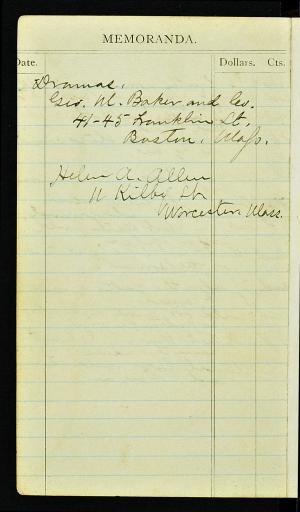 MEMORANDA.
Date. Dollars. Cts.
Dramas,
Geo. M. Baker and Co.
41-45 Franklin St.
Boston, Mass.
Helen A. Allen
11 Kilby St.
Worcester, Mass.